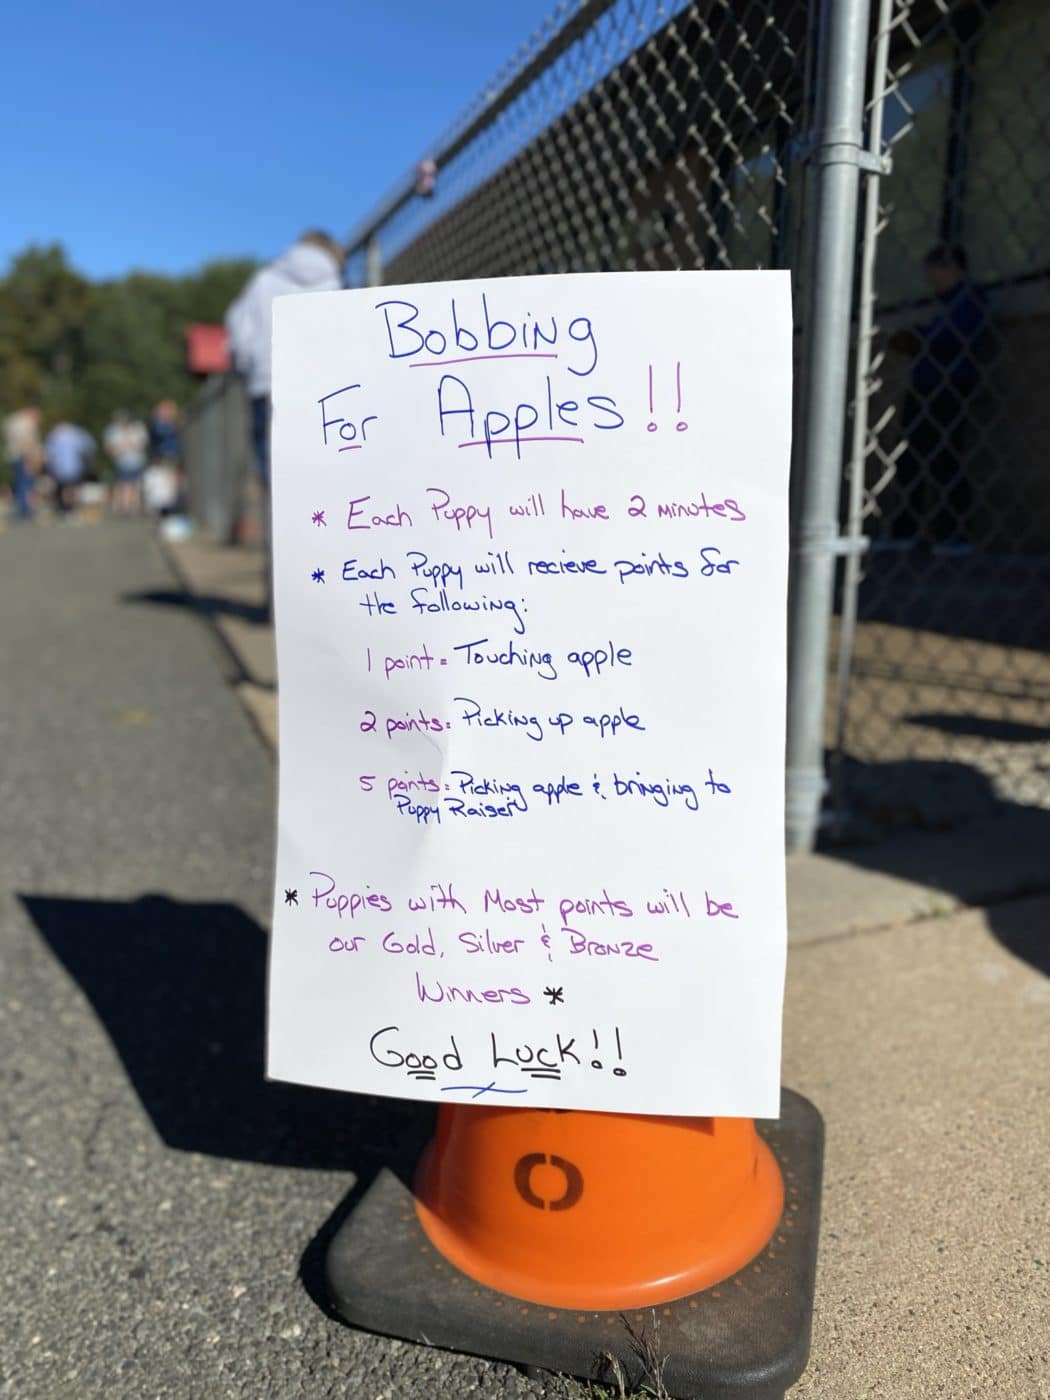 Bobbing
For Apples!!
* Each Puppy will have 2 minutes
* Each Puppy will recieve points for
the following:
1 point = Touching apple
2 points = Picking up apple
5 points = Picking apple & bringing to
Puppy Raiser
* Puppies with Most points will be
our Gold, Silver & Bronze
Winners *
Good Luck!!
O